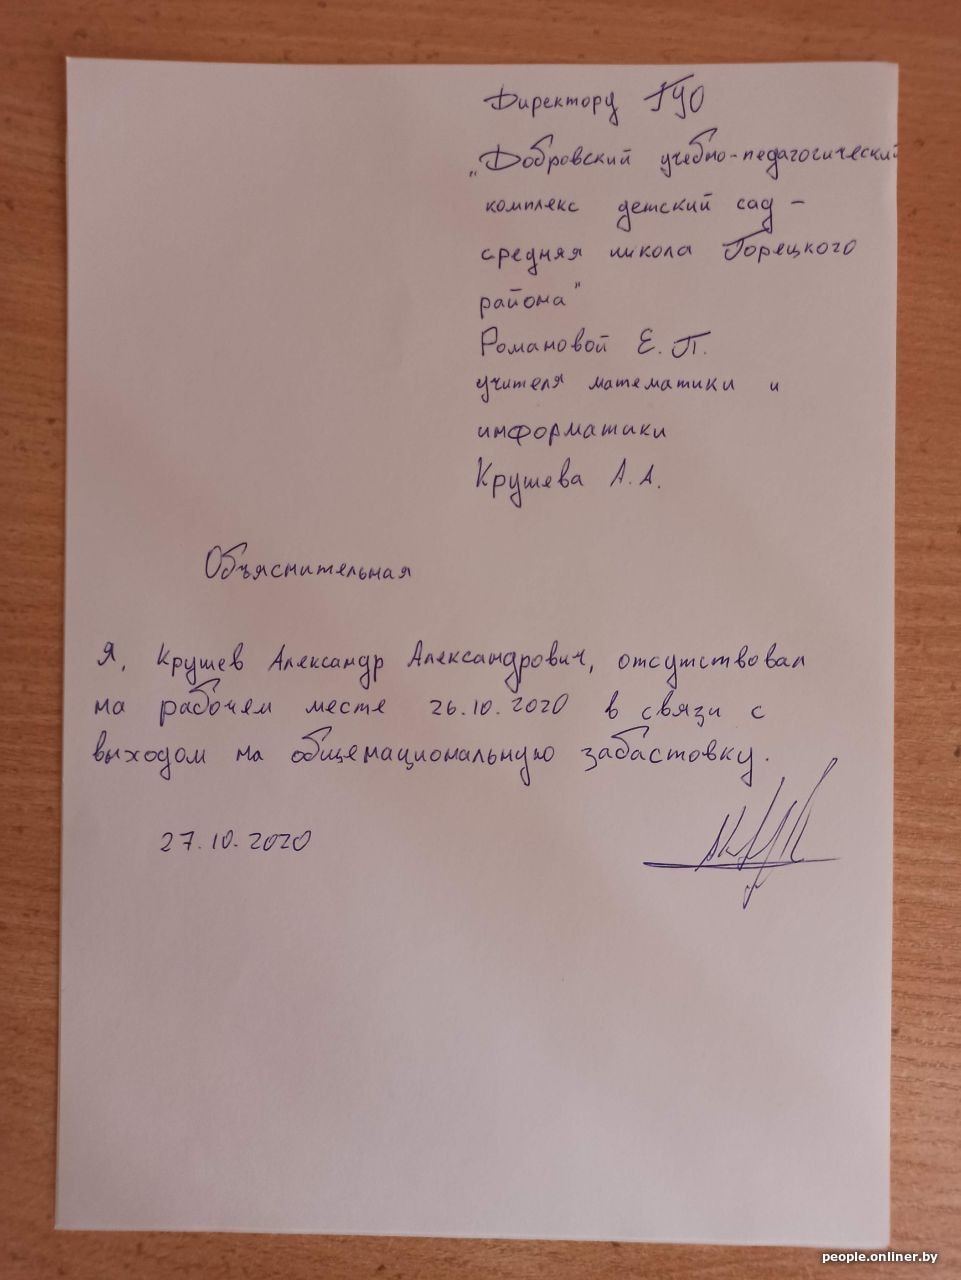 Директору ГУО
„Добровский учебно-педагогический
комплекс детский сад -
средняя школа Горецкого
района"
Романовой Е. П.
учителя математики и
информатики
Крушева А. А.
Объяснительная
Я, Крушев Александр Александрович, отсутствовал
на рабочем месте 26.10.2020 в связи с
выходом на общенациональную забастовку.
27.10.2020
people.onliner.by